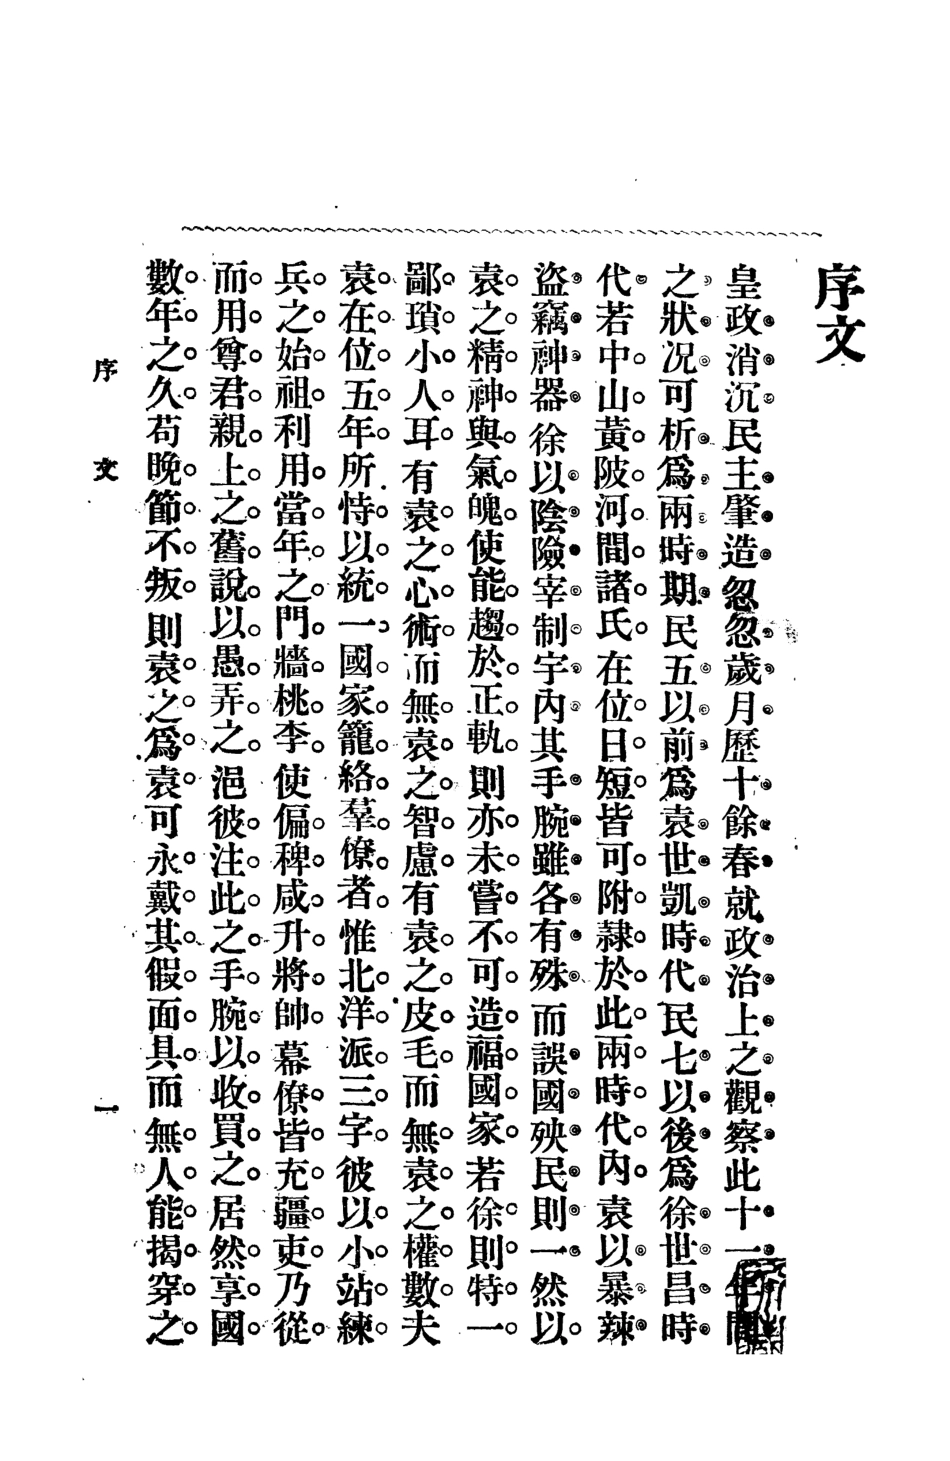 序文
皇政消沉民主肇造忽忽歲月歷十餘春就政治上之觀察此十一年間
之狀况可析爲兩時期民五以前爲袁世凱時代民七以後爲徐世昌時
代若中山黃陂河間諸氏在位日短皆可附隸於此兩時代內袁以暴辣
盜竊神器徐以陰險宰制宇內其手腕雖各有殊而誤國殃民則一然以
袁之精神與氣魄使能趨於正軌則亦未嘗不可造福國家若徐則特一
鄙瑣小人耳有袁之心術而無袁之智慮有袁之皮毛而無袁之權數夫
袁在位五年所恃以統一國家籠絡羣僚者惟北洋派三字彼以小站練
兵之始祖利用當年之門牆桃李使偏稗咸升將帥幕僚皆充疆吏乃從
而用尊君親上之舊說以愚弄之浥彼注此之手腕以收買之居然享國
數年之久苟晚節不叛則袁之爲袁可永戴其假面具而無人能揭穿之
序 文 一